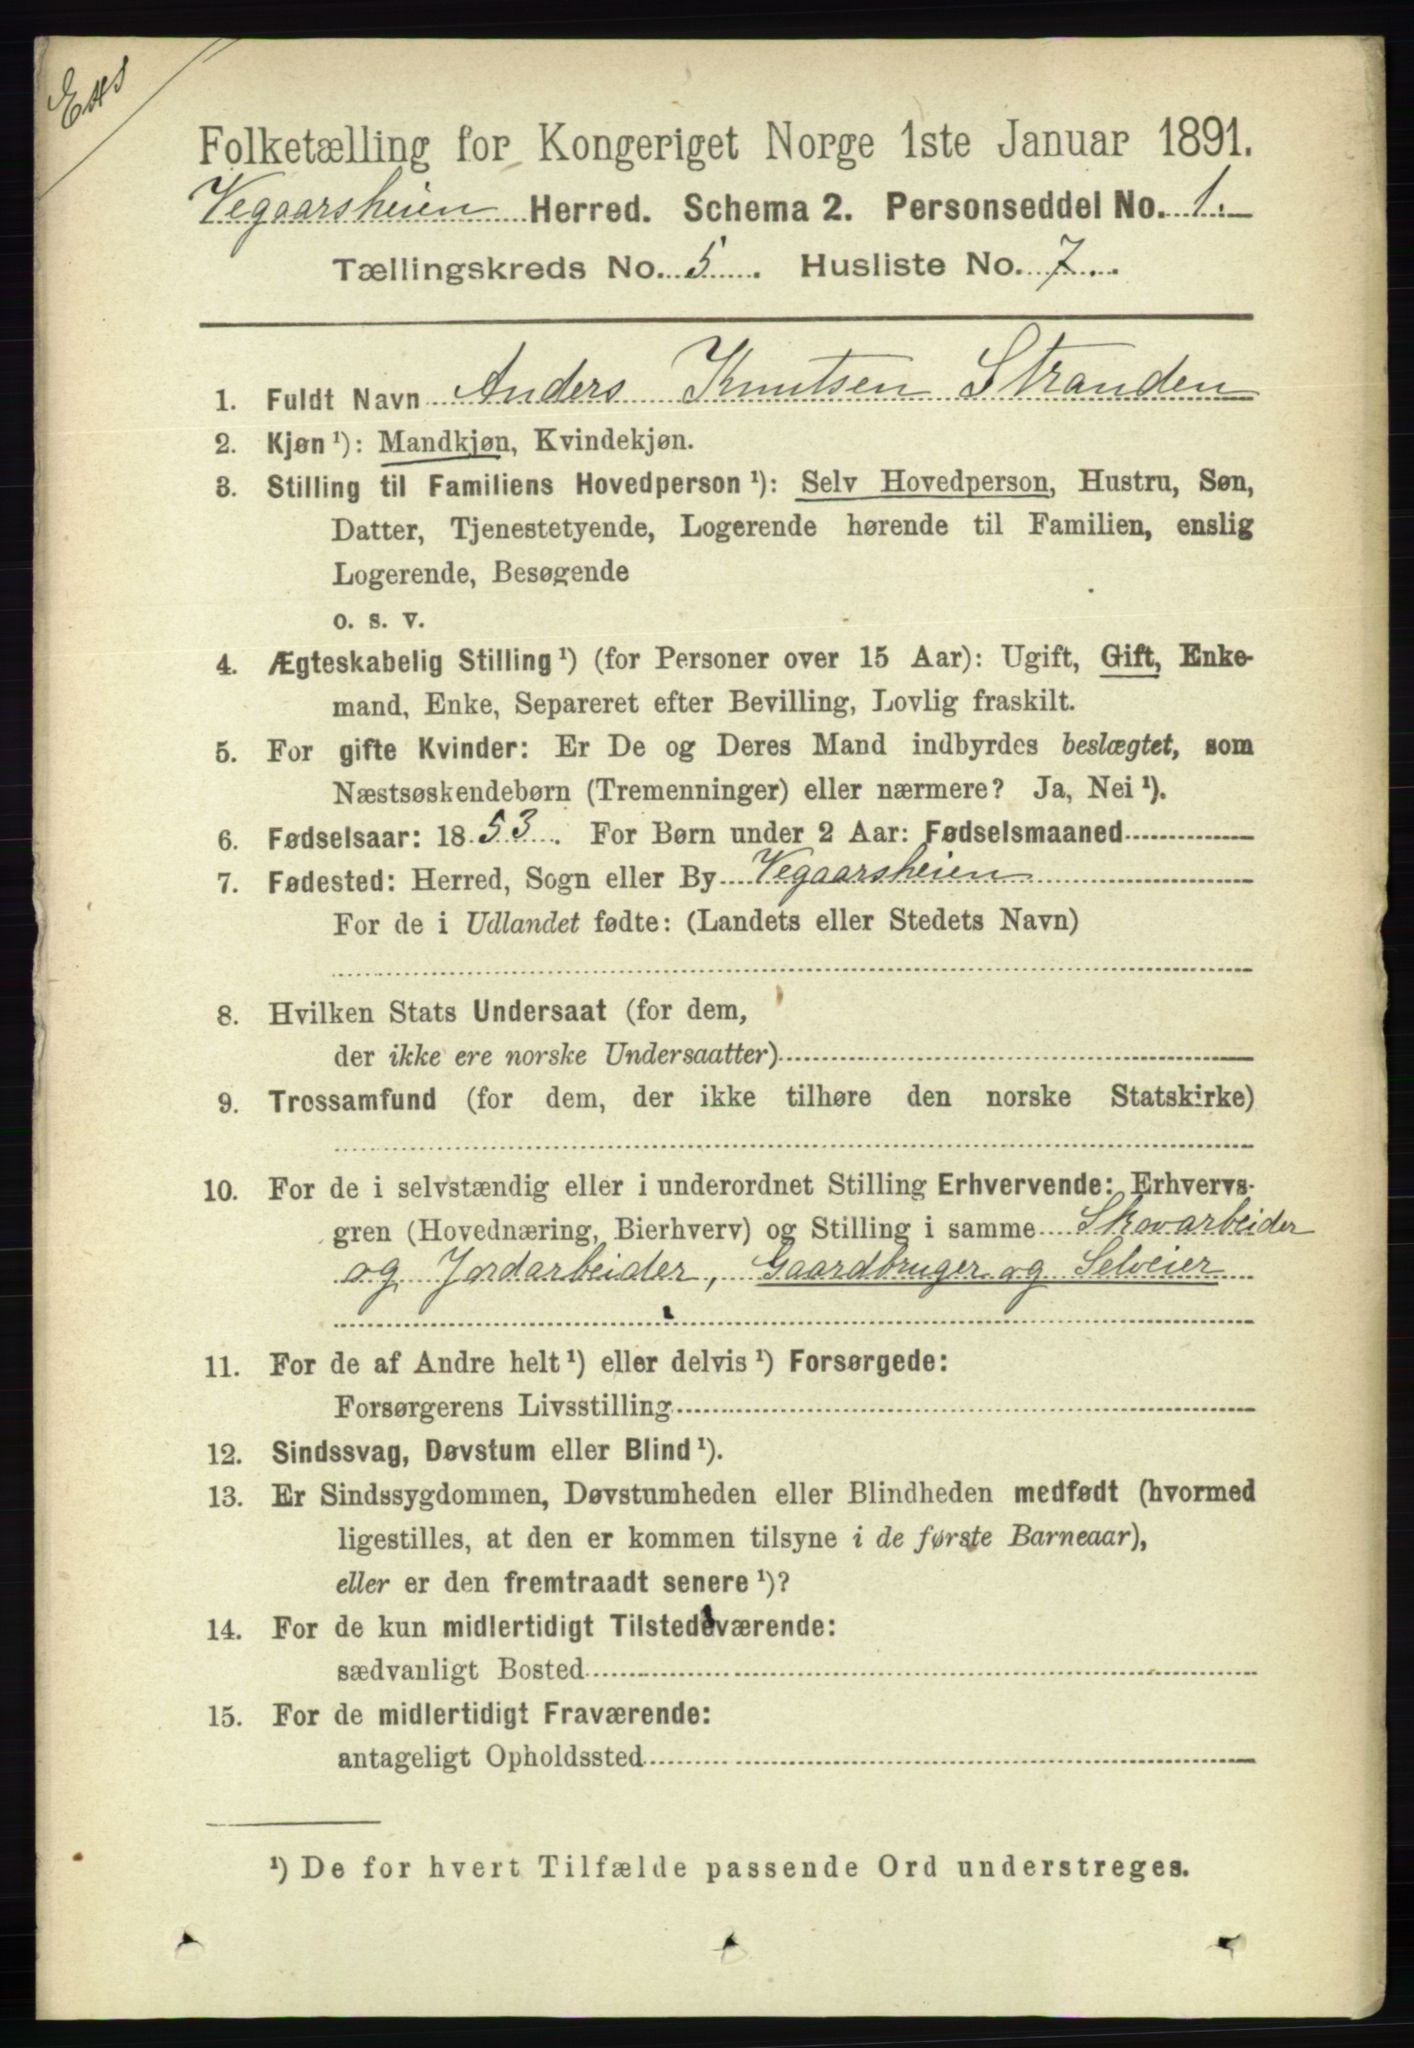 Folketælling for Kongeriget Norge 1ste Januar 1891.
Vegaarsheien Herred. Schema 2. Personseddel No. 1.
Tællingskreds No. 5. Husliste No. 7.
1. Fuldt Navn Anders Knutsen Stranden
2. Kjøn ¹): Mandkjøn, Kvindekjøn.
3. Stilling til Familiens Hovedperson ¹): Selv Hovedperson, Hustru, Søn,
Datter, Tjenestetyende, Logerende hørende til Familien, enslig
Logerende, Besøgende
o. s. v.
4. Ægteskabelig Stilling ¹) (for Personer over 15 Aar): Ugift, Gift, Enke-
mand, Enke, Separeret efter Bevilling, Lovlig fraskilt.
5. For gifte Kvinder: Er De og Deres Mand indbyrdes beslægtet, som
Næstsøskendebørn (Tremenninger) eller nærmere? Ja, Nei ¹).
6. Fødselsaar: 1853. For Børn under 2 Aar: Fødselsmaaned
7. Fødested: Herred, Sogn eller By Vegaarsheien
For de i Udlandet fødte: (Landets eller Stedets Navn)
8. Hvilken Stats Undersaat (for dem,
der ikke ere norske Undersaatter)
9. Trossamfund (for dem, der ikke tilhøre den norske Statskirke)
10. For de i selvstændig eller i underordnet Stilling Erhvervende: Erhvervs-
gren (Hovednæring, Bierhverv) og Stilling i samme Skovarbeider
og Jordarbeider, Gaardbruger og Selveier
11. For de af Andre helt ¹) eller delvis ¹) Forsørgede:
Forsørgerens Livsstilling
12. Sindssvag, Døvstum eller Blind ¹).
13. Er Sindssygdommen, Døvstumheden eller Blindheden medfødt (hvormed
ligestilles, at den er kommen tilsyne i de første Barneaar),
eller er den fremtraadt senere ¹)?
14. For de kun midlertidigt Tilstedeværende:
sædvanligt Bosted
15. For de midlertidigt Fraværende:
antageligt Opholdssted
¹) De for hvert Tilfælde passende Ord understreges.